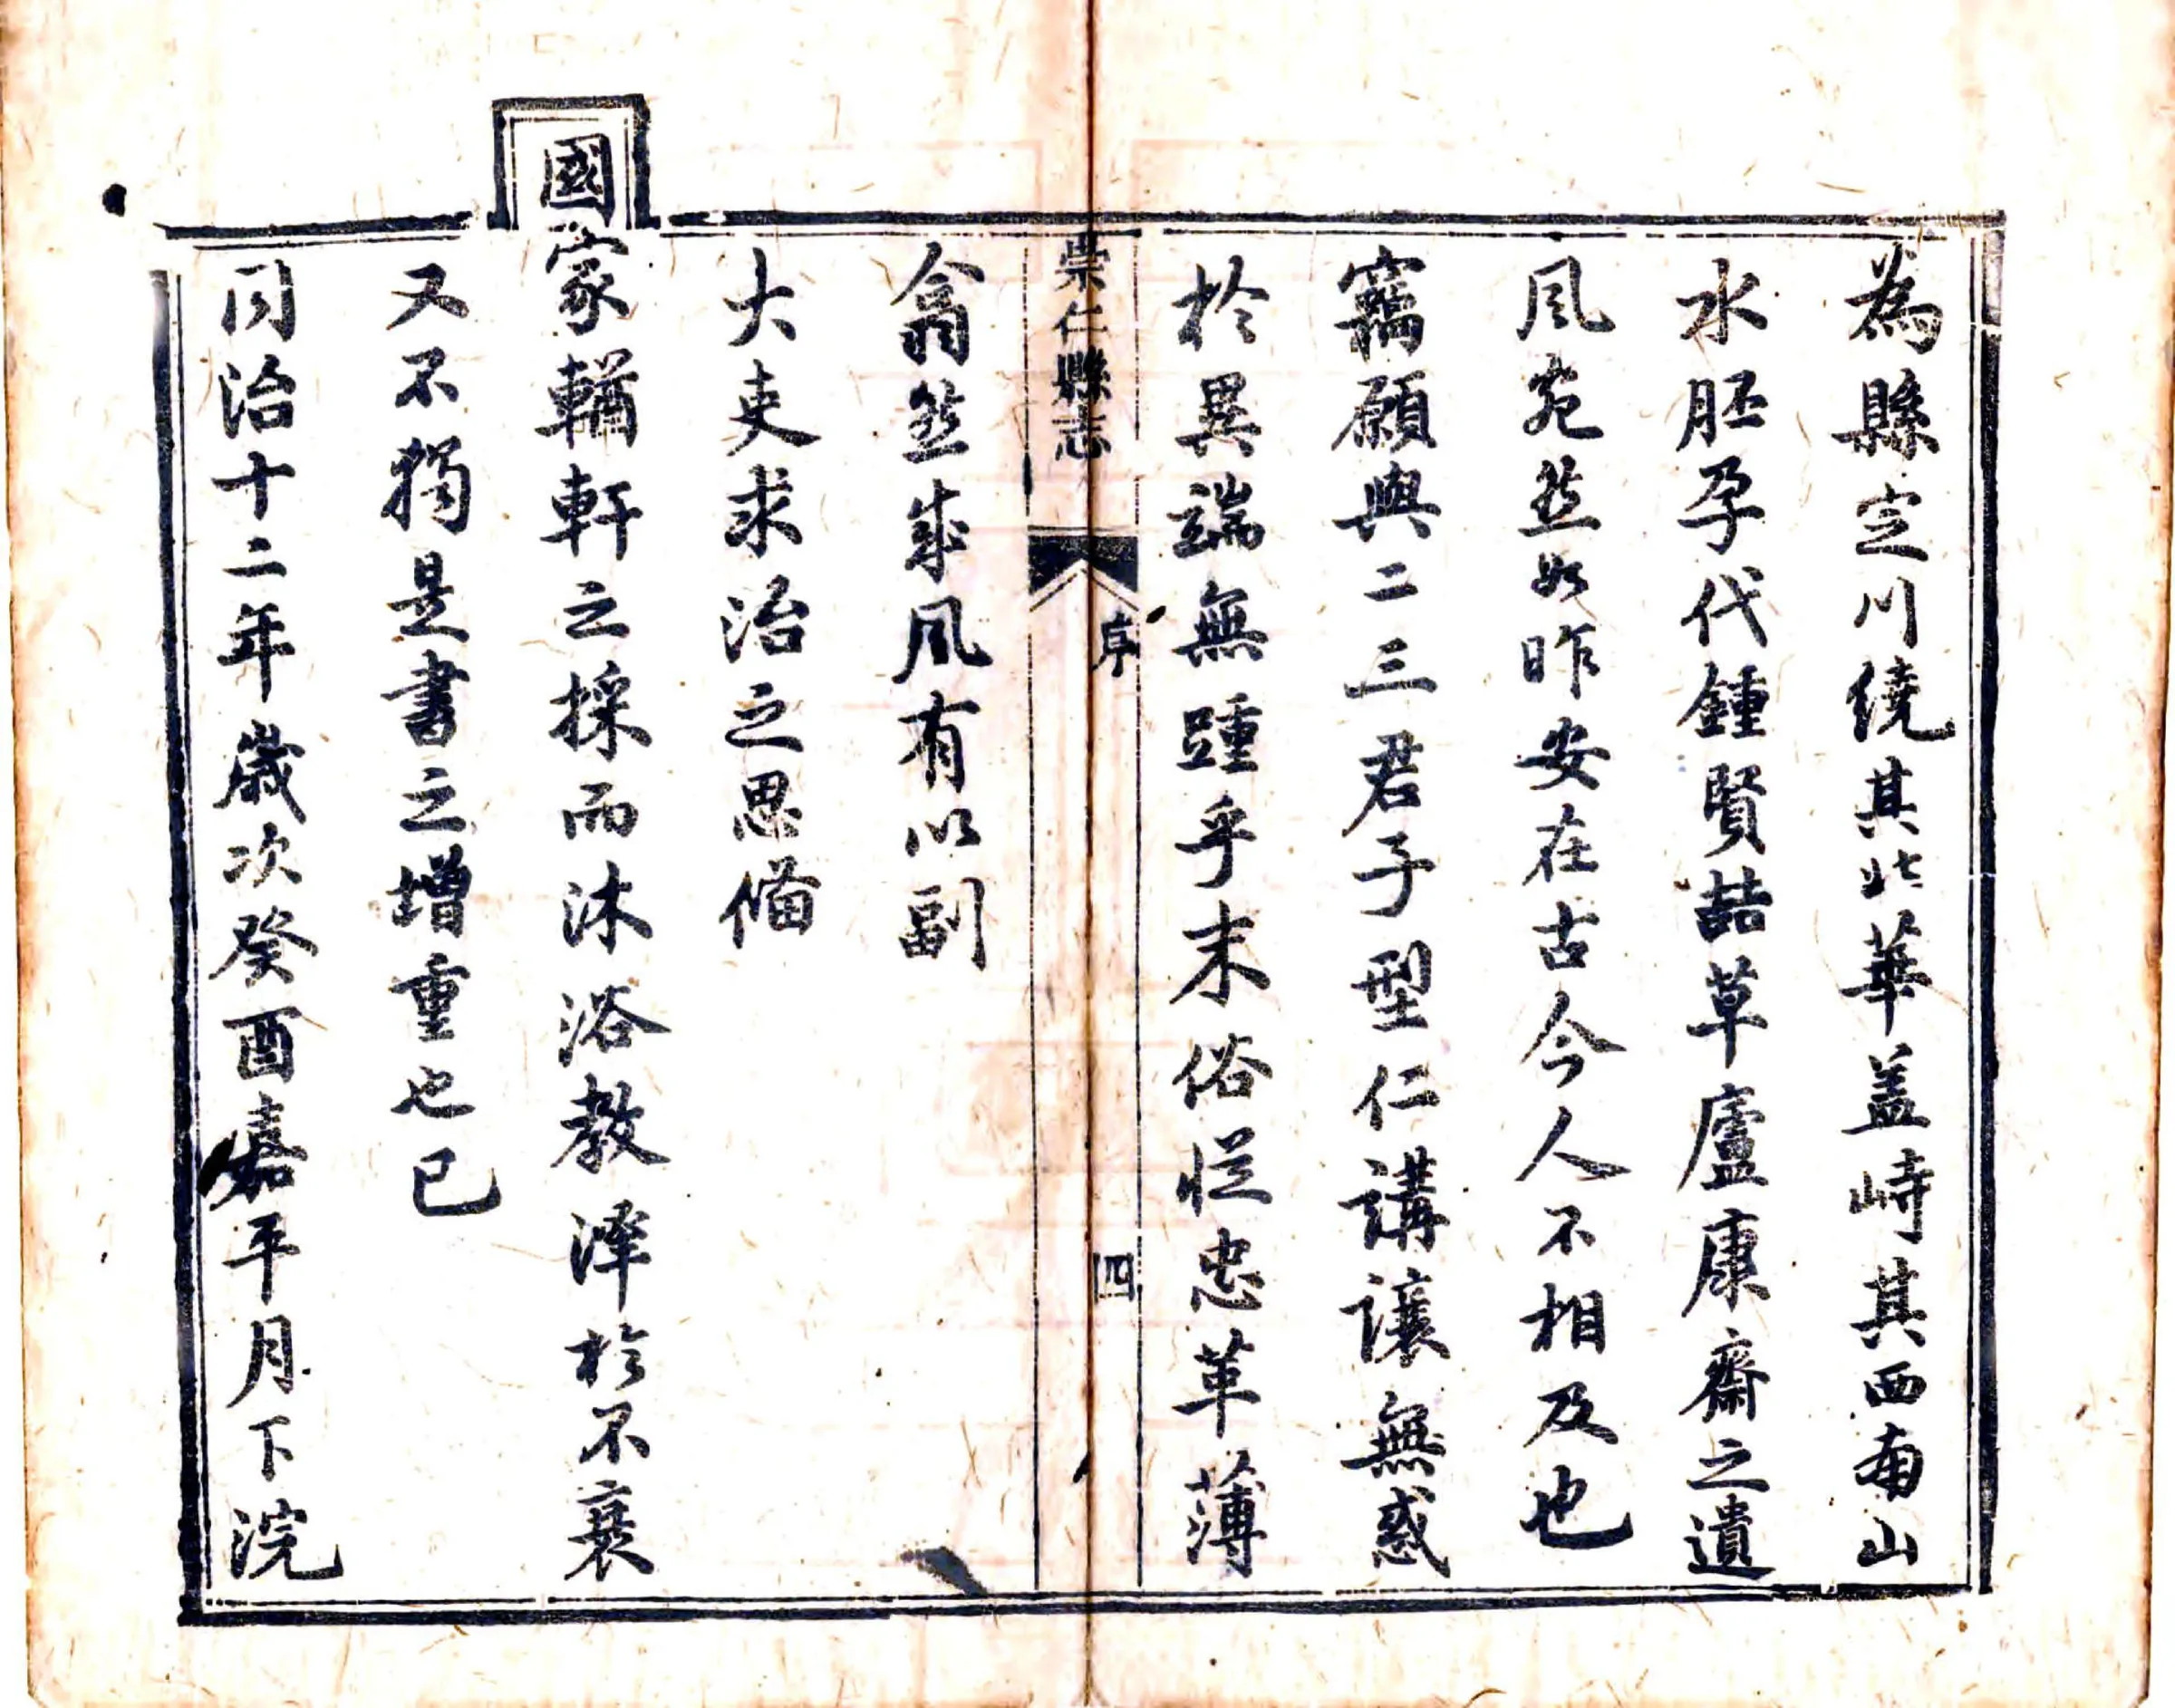 為縣宝川繞其北華盖峙其西南山
水胚孕代鍾賢喆草廬康齋之遺
風宛然如昨安在古今人不相及也
竊願與二三君子型仁講讓無惑
於異端無踵乎末俗愧忠革薄
崇仁縣志
序
四
翕然成風有以副
大吏求治之思俻
國家輶軒之採而沐浴教澤於不衰
又不獨是書之增重也已
同治十二年歲次癸酉嘉平月下浣